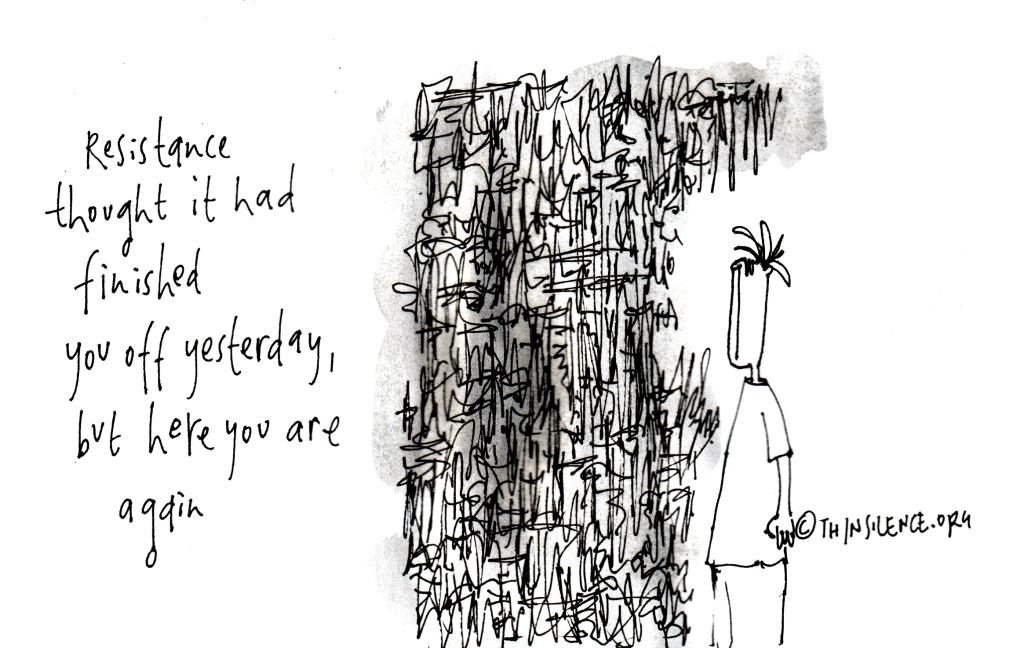 Resistance
thought it had
finished
you off yesterday,
but here you are
again
© THINSILENCE.ORG